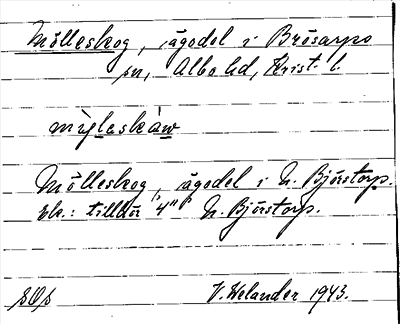 Mölleskog, ägodel i Brösarps
sn, Albo hd, Krist. l.
mỳleskàw
Mölleskog, ägodel i N. Björstorp.
Ek.: tillhör "4" N. Björstorp.
V. Welander 1943.